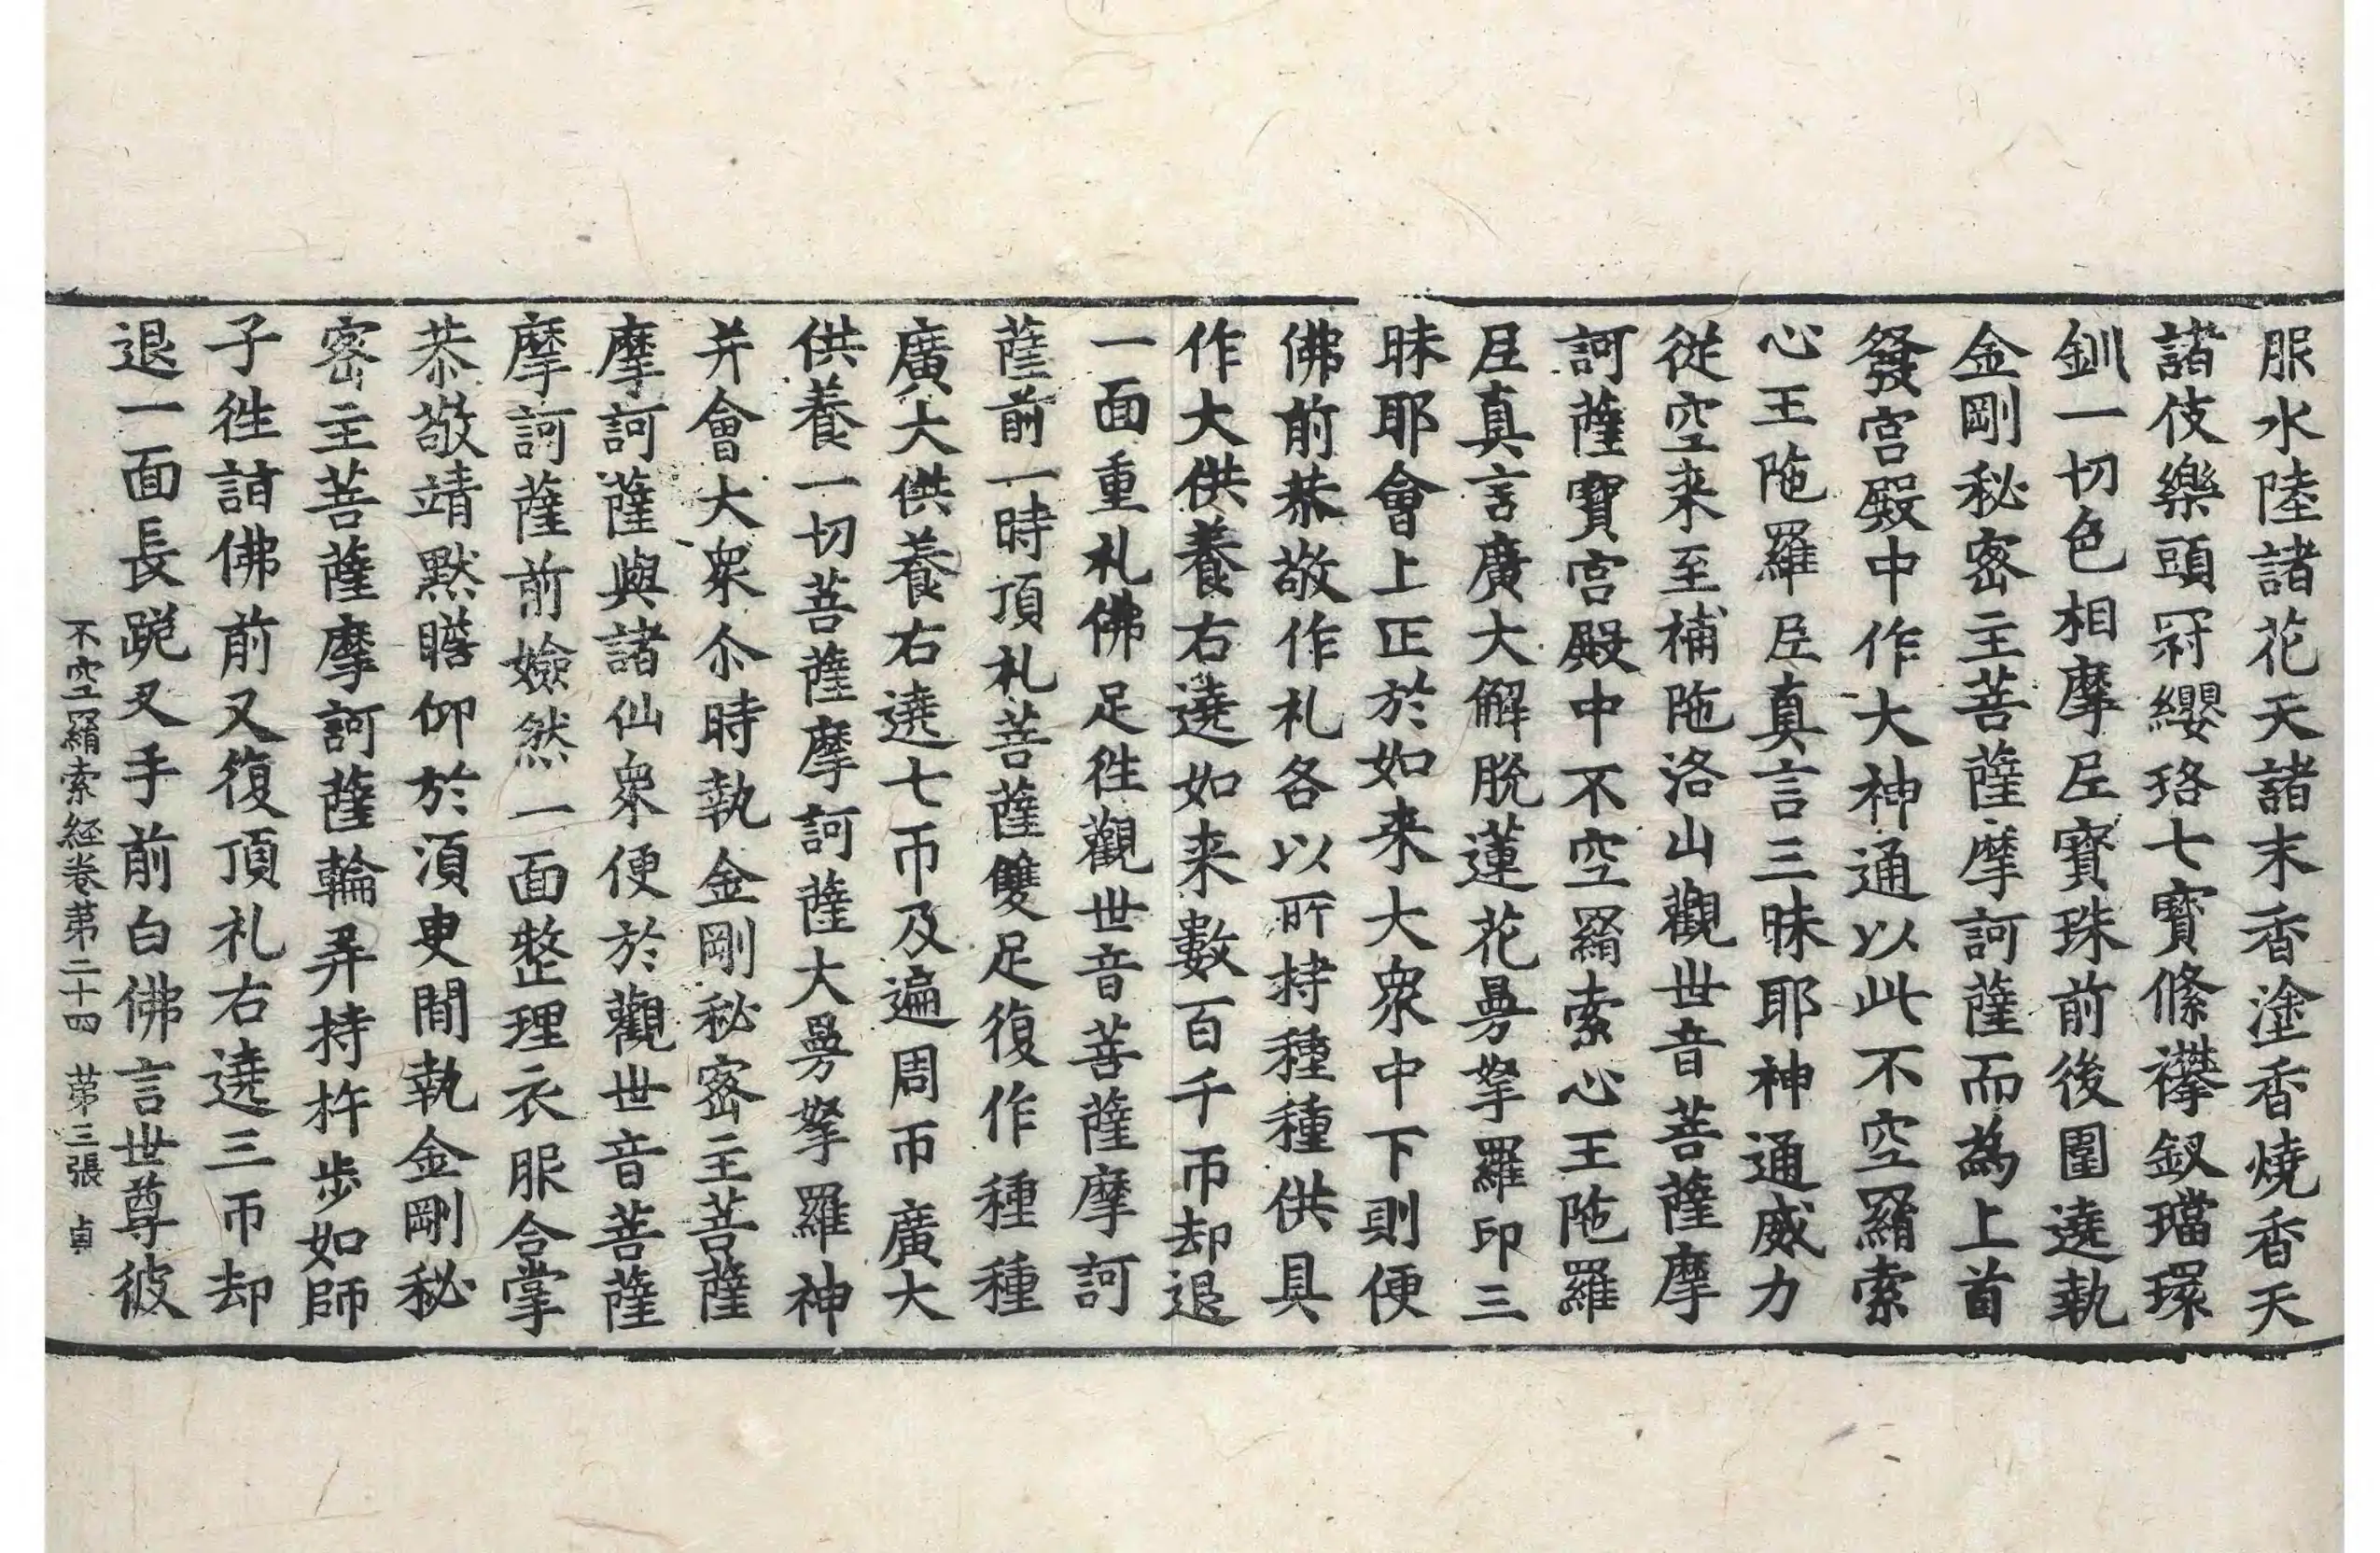 服水陸諸花天諸末香塗香燒香天
諸伎樂頭冠纓珞七寶絛襻釵璫環
釧一切色相摩尼寶珠前後圍遶執
金剛秘密主菩薩摩訶薩而為上首
發宮殿中作大神通以此不空羂索
心王陁羅尼真言三昧耶神通威力
從空来至補陁洛山觀世音菩薩摩
訶薩寶宮殿中不空羂索心王陁羅
尼真言廣大解脫蓮花曼拏羅印三
昧耶會上正於如来大衆中下則便
佛前恭敬作礼各以所持種種供具
作大供養右遶如来數百千帀却退
一面重礼佛足徃觀世音菩薩摩訶
薩前一時頂礼菩薩雙足復作種種
廣大供養右遶七帀及遍周帀廣大
供養一切菩薩摩訶薩大曼拏羅神
并會大衆尒時執金剛秘密主菩薩
摩訶薩與諸仙衆便於觀世音菩薩
摩訶薩前嬐然一面整理衣服合掌
恭敬靖默瞻仰於湏臾閒執金剛秘
密主菩薩摩訶薩輪弄持杵步如師
子徃詣佛前又復頂礼右遶三帀却
退一面長跪叉手前白佛言世尊彼
不空羂索經卷第二十四 第三張 貞